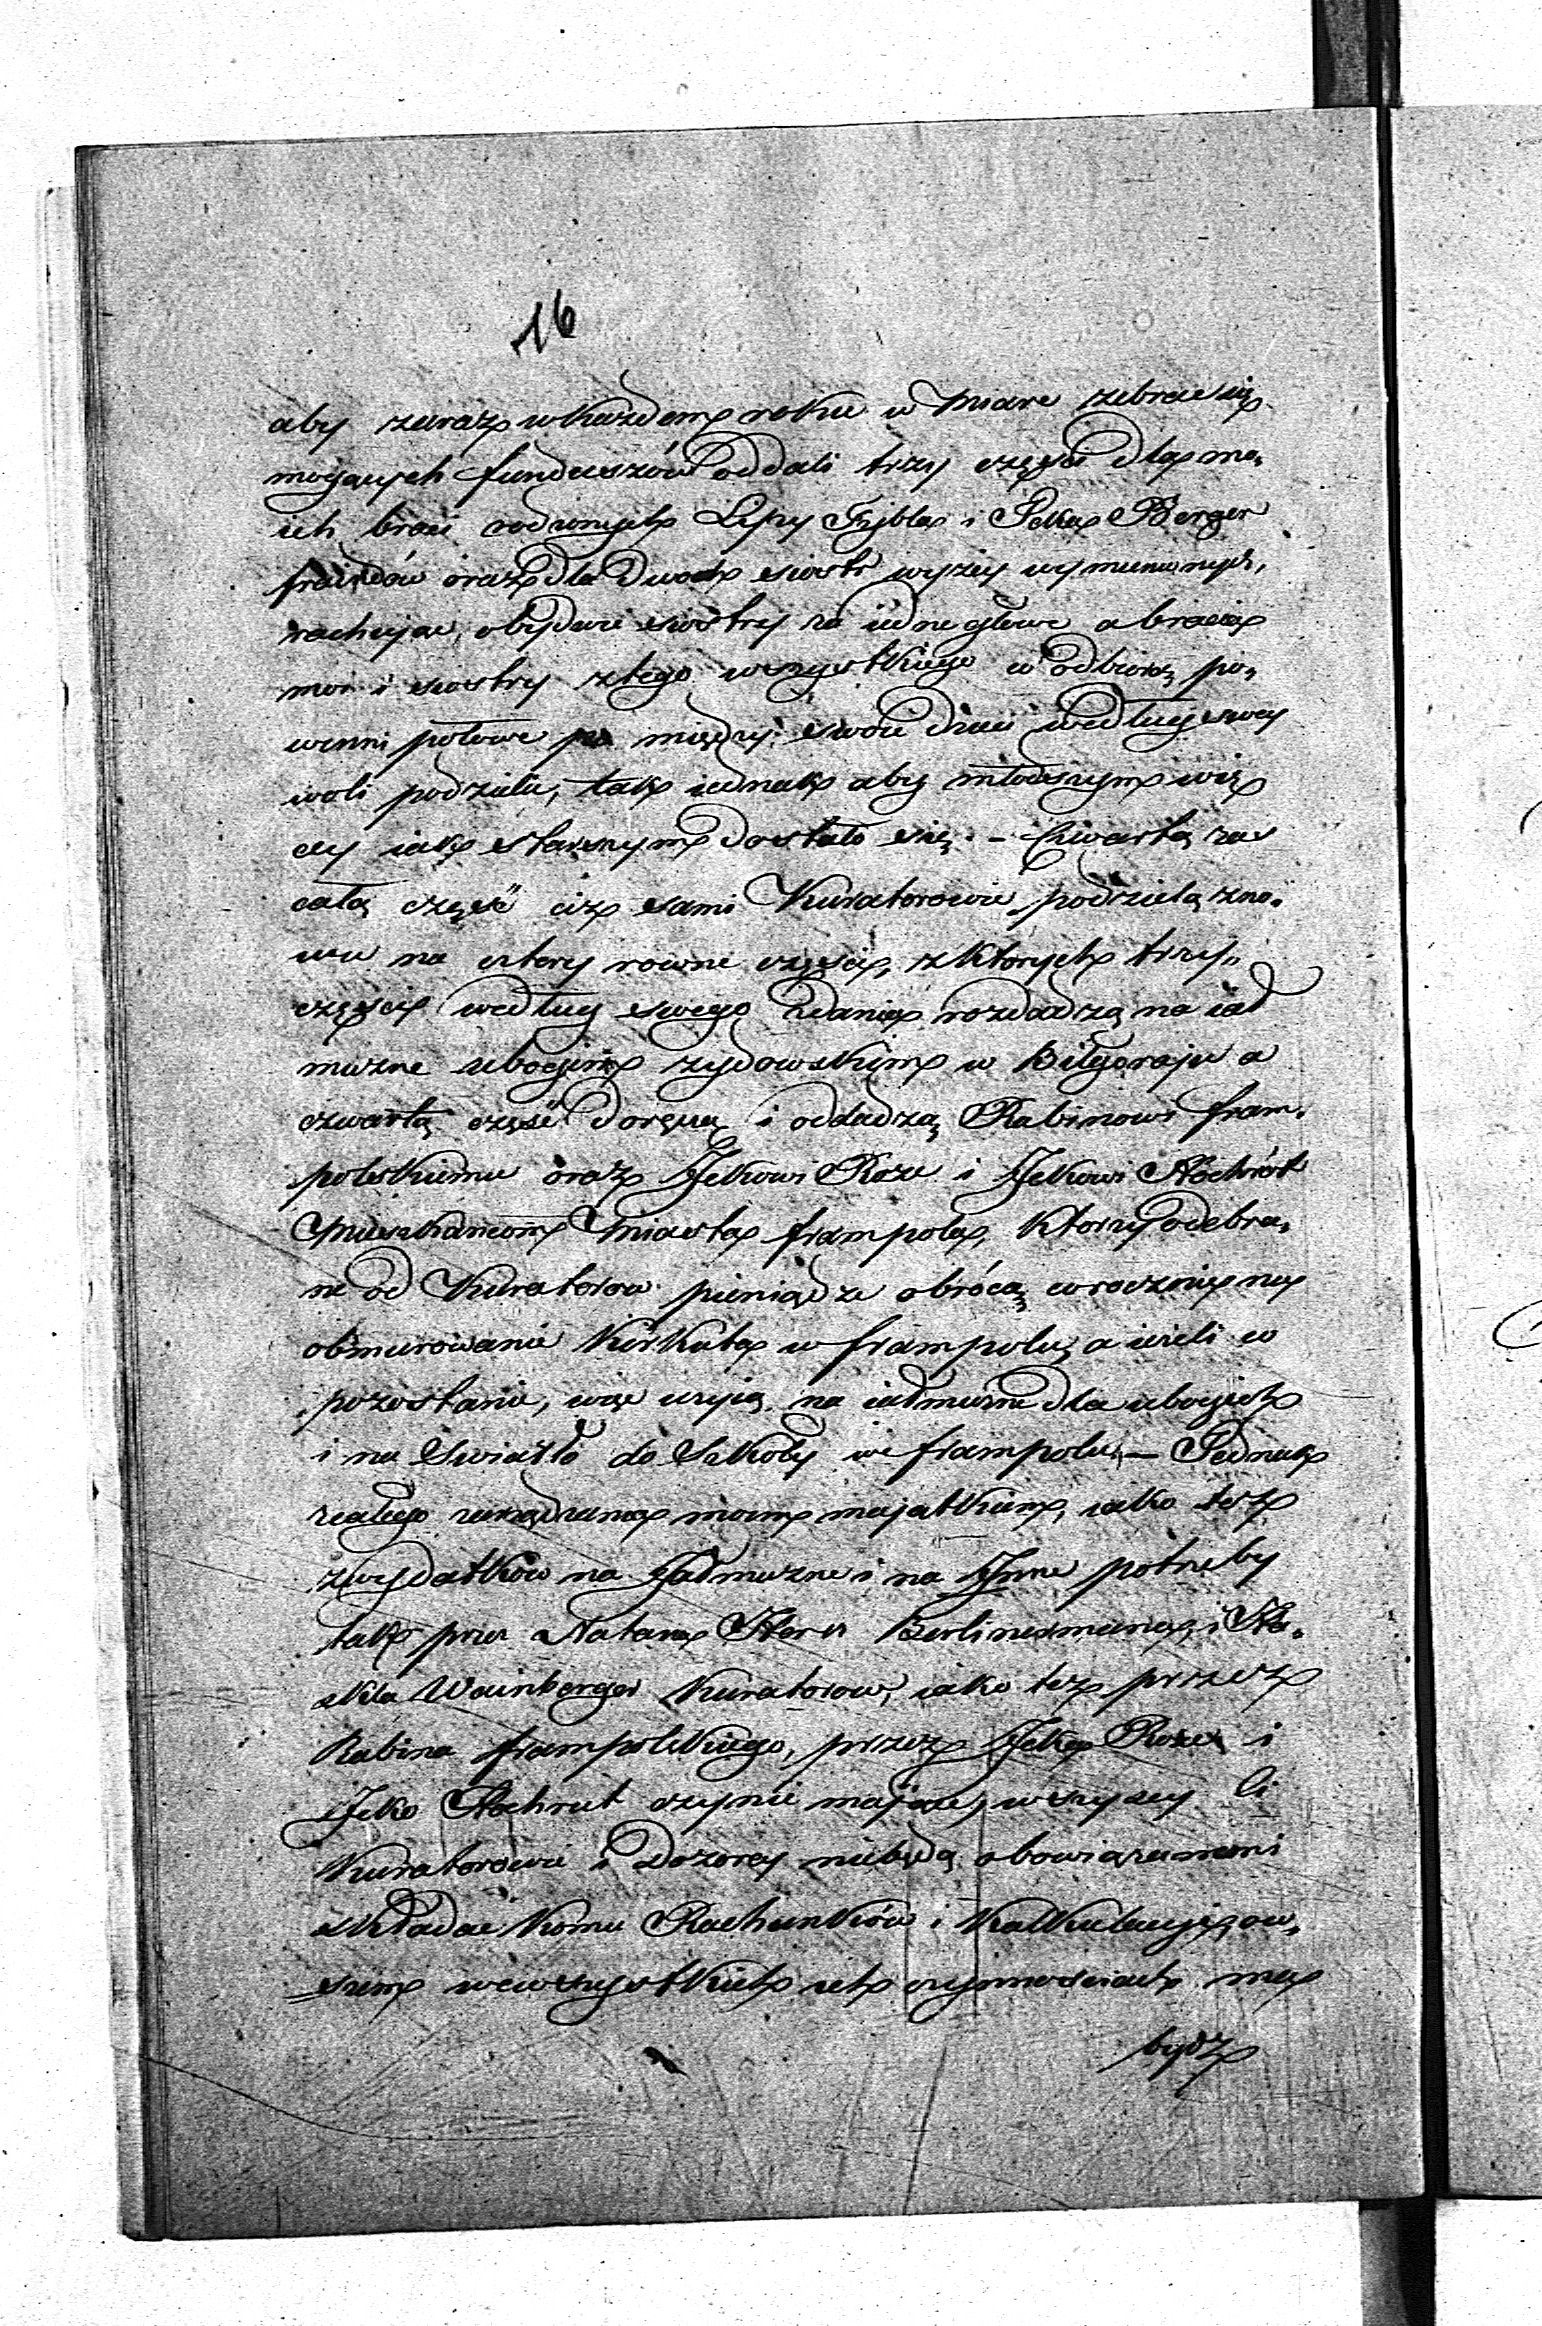 16
aby zaraz w każdem roku w miarę zebrać się
mogących funduszów oddali trzy części dla mo„
ich braci rodzonych Lipy Fejbla i Icka Berger
frajndów oraz dla dwoch siostr wyżey wymienionych,
rachując obydwie siostry za iedne głowe a bracia
moi i siostry z tego wszystkiego co odbiorą po„
winni połowe po między swoie dzieci według swey
woli podzielić, tak iednak aby młodszym wię
cey iak starszym dostało się. – Czwartą zaś
całą część ciż sami Kuratorowie podzielą zno„
wu na cztery rowne części, z ktorych trzy„
części według swego zdania rozdadzą na iał
mużne ubogim żydowskim w Biłgoraju a
czwartą część doręczą i oddadzą Rabinowi fram„
polskiemu oraz Ickowi Roze i Ickowi Hochrót
Mieszkańcom Miasta frampola, ktorzy odebra„
ne od Kuratorow pieniądze obrócą corocznie na
obmurowanie Kirkuta w frampolu, a ieżeli co
pozostanie, więc użyią na iałmużne dla ubogich
i na Swiatło do Szkoły w frampolu. – Jednak
z całego zarządzania moim majątkiem, iako też
z wydatków na Jałmużne i na Inne potrzeby
tak przez Natana Herz Berlinermana, i Ha„
skla Wainberger Kuratorow, iako też przez
Rabina frampolskiego, przez Icka Roze i
Icko Hochrut czynić mające, wszyscy Ci
Kuratorowie i Dozorcy niebędą obowiązanemi
składać komu Rachunków i Kalkulacyi, ow„
szem we wszystkich ich czynnościach maią
bydź